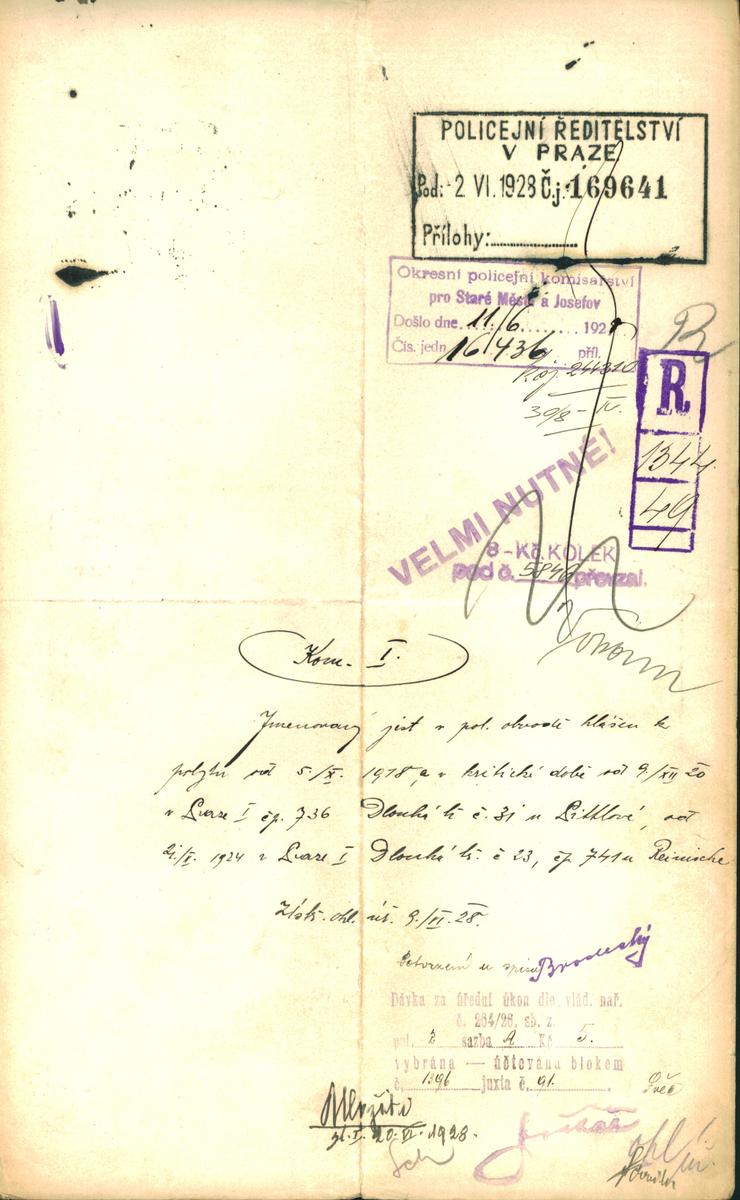 POLICEJNÍ ŘEDITELSTVÍ
V PRAZE
Pod: - 2. VI. 1928 Č.j. 169641
Přílohy:
Okresní policejní komisařství
pro Staré Město a Josefov
Došlo dne 11/6 1928
Čís. jedn. 16436 příl.
244310
30/8 - IV.
R
R
1344
49
VELMI NUTNÉ!
8 - Kč KOLEK
pod č. 5840 převzal.
Kom. I.
Jmenovaný jest v pol. obvodě hlášen k
pobytu od 5./X. 1918 a v kritické době od 9/XII 20
v Praze I čp. 736 Dlouhá tř. č. 31 u Pittlové, od
1924 v Praze I Dlouhá tř. č 23, čp 741 u Reinische
ohl. úř. 9./VI. 28.
Potvrzení u spisu
Dávka za úřední úkon dle vlád. nař.
č. 264/26. sb. z.
pol. 2 sazba A Kč 5.
vybrána — účtována blokem
č. 1396 juxta č. 91.
20. VI. 1928.